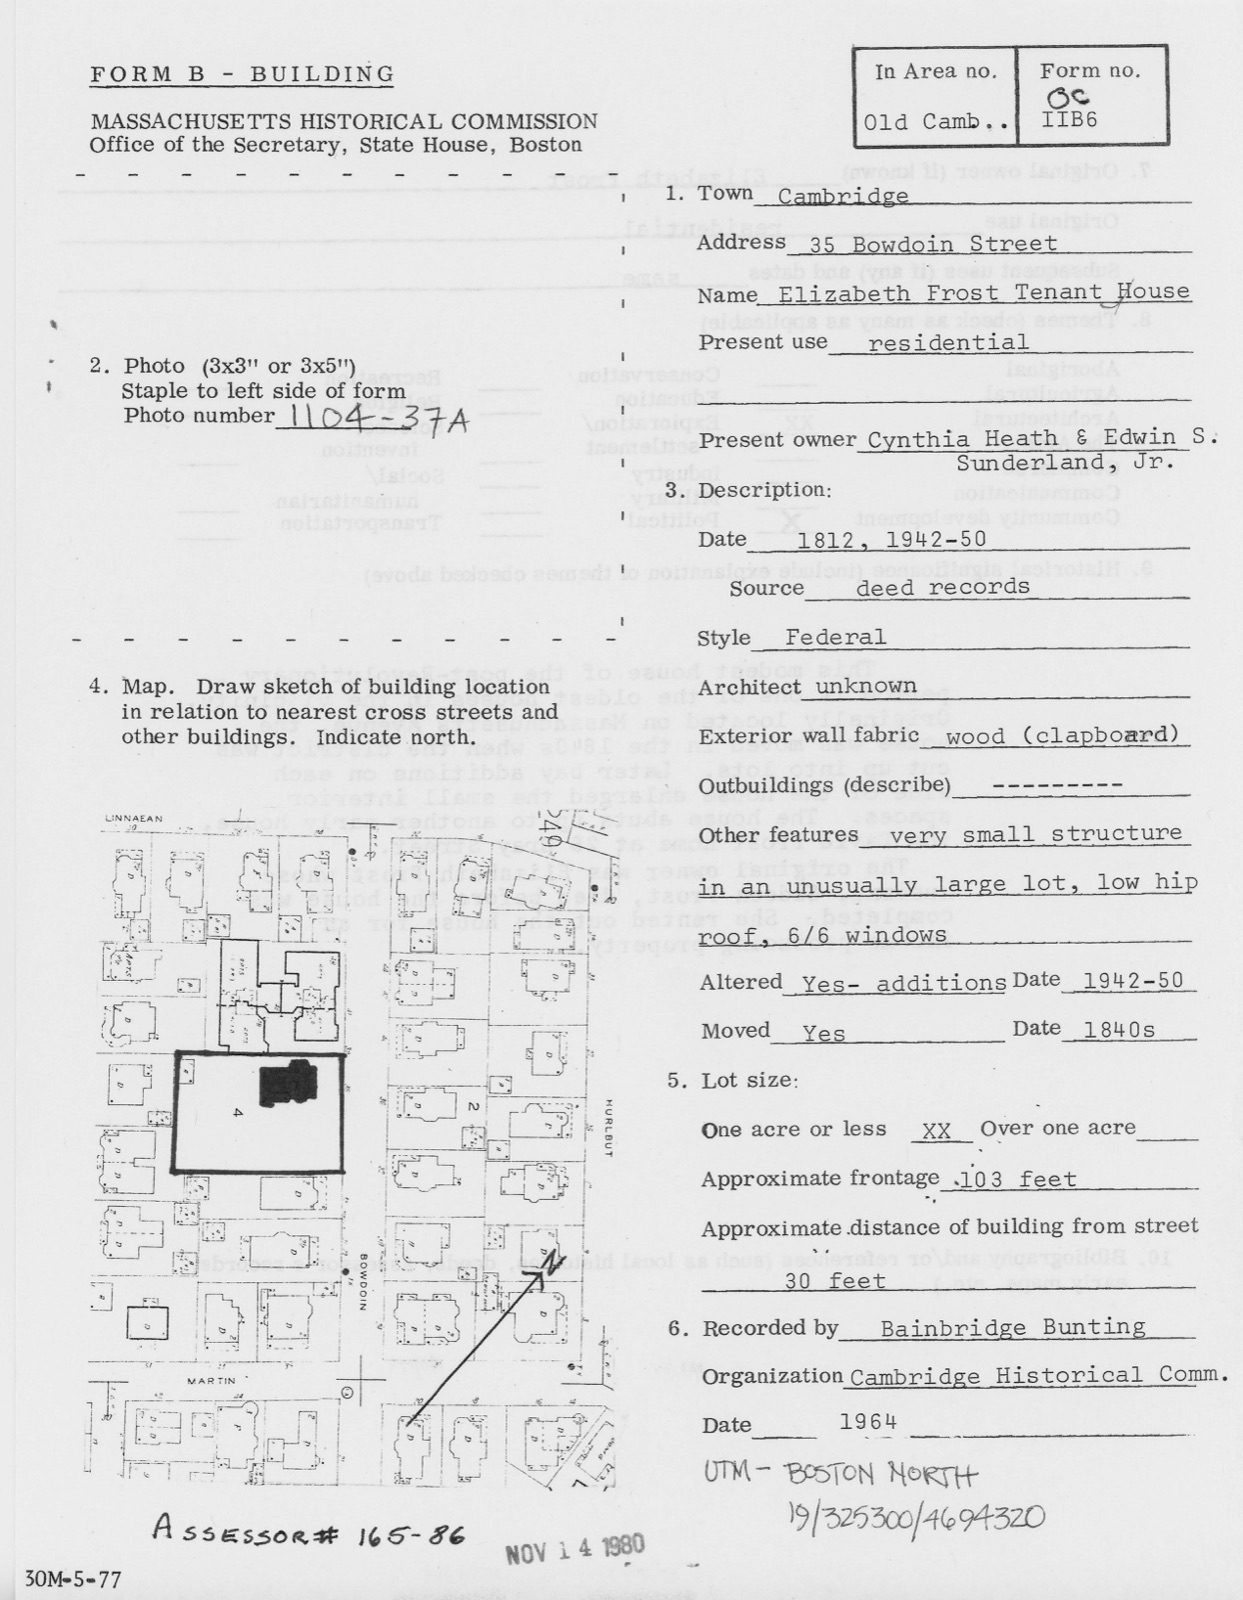 FORM B - BUILDING
In Area no.
Form no.
OC
Old Camb..
IIB6
MASSACHUSETTS HISTORICAL COMMISSION
Office of the Secretary, State House, Boston
1. Town Cambridge
Address 35 Bowdoin Street
Name Elizabeth Frost Tenant House
Present use residential
Present owner Cynthia Heath & Edwin S.
Sunderland, Jr.
2. Photo (3x3" or 3x5")
Staple to left side of form
Photo number 1104-37A
3. Description:
Date 1812, 1942-50
Source deed records
Style Federal
Architect unknown
Exterior wall fabric wood (clapboard)
Outbuildings (describe) ---------
Other features very small structure
in an unusually large lot, low hip
roof, 6/6 windows
Altered Yes- additions Date 1942-50
Moved Yes Date 1840s
4. Map. Draw sketch of building location
in relation to nearest cross streets and
other buildings. Indicate north.
LINNAEAN
249
4
2
HURLBUT
BOWDOIN
N
MARTIN
5. Lot size:
One acre or less XX Over one acre
Approximate frontage 103 feet
Approximate distance of building from street
30 feet
6. Recorded by Bainbridge Bunting
Organization Cambridge Historical Comm.
Date 1964
UTM - BOSTON NORTH
19/325300/4694320
ASSESSOR# 165-86
NOV 14 1980
30M-5-77